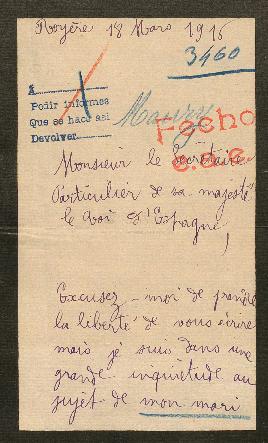 Royère 18 Mars 1916
3460
A
Pedir informes
Que se hace asi
Devolver
Maury
Fecho
Monsieur le Secrétaire
Particulier de sa majesté
le Roi d'Espagne,
Excusez-moi de prendre
la liberté de vous écrire
mais je suis dans une
grande inquiétude au
sujet de mon mari